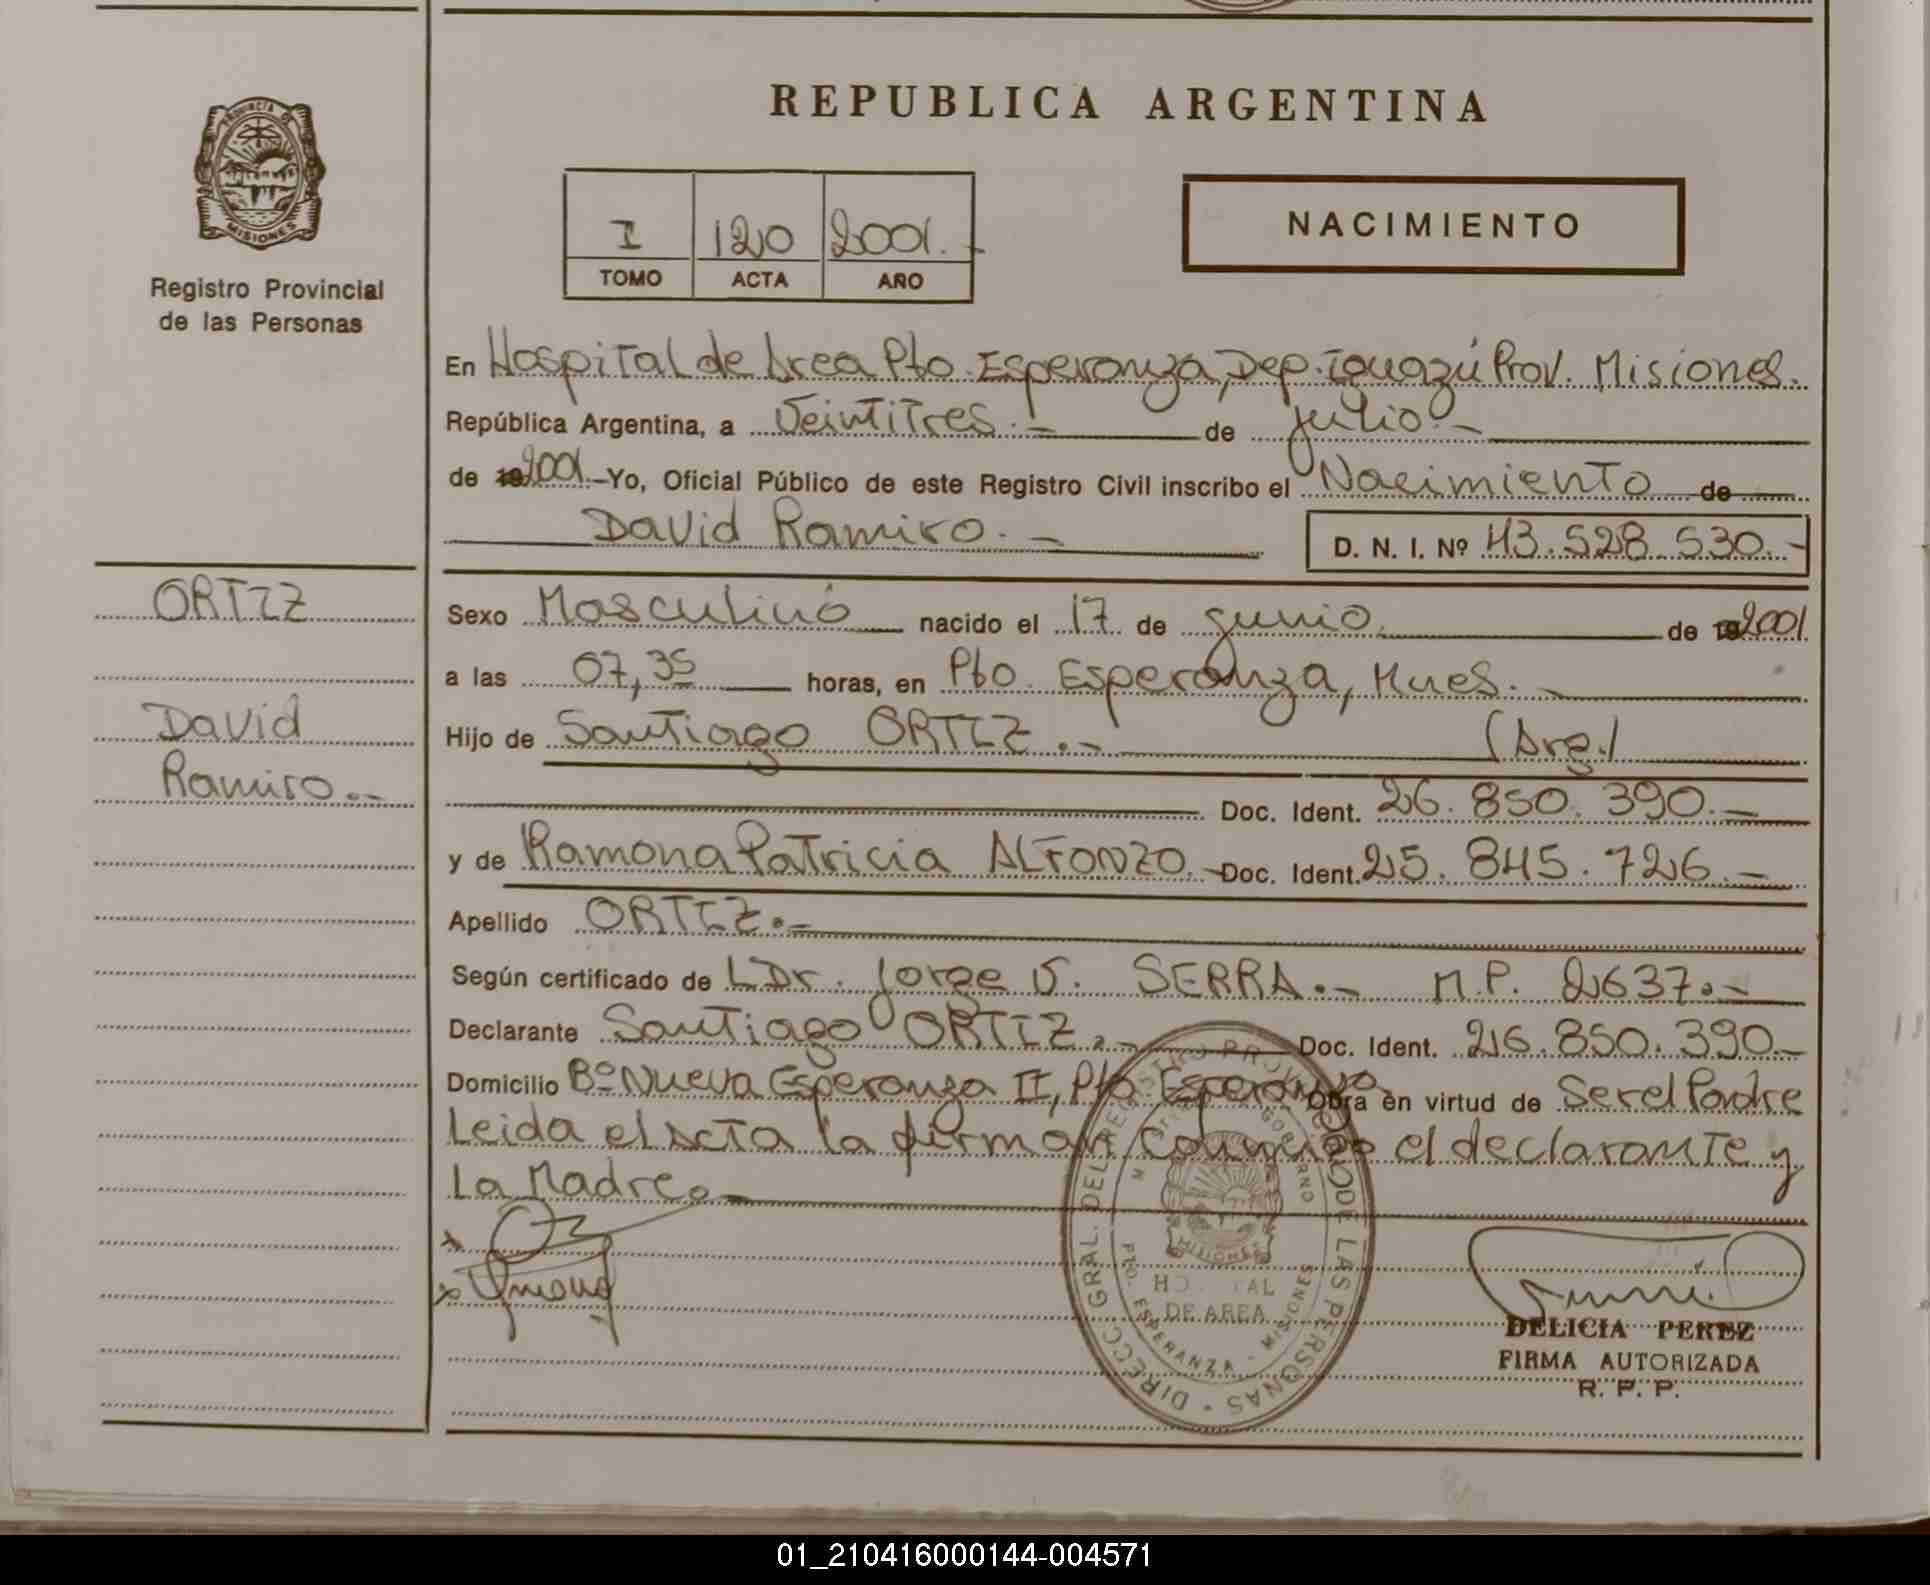 REPUBLICA ARGENTINA
PROVINCIA DE
MISIONES
Registro Provincial
de las Personas
I 120 2001.-
TOMO ACTA AÑO
NACIMIENTO
En Hospital de Area Pto. Esperanza, Dep. Iguazú Prov. Misiones.
República Argentina, a Veintitres.- de julio.-
de 19 2001.- Yo, Oficial Público de este Registro Civil inscribo el Nacimiento de
David Ramiro.- D. N. I. Nº 43.528.530.-
ORTIZ
David
Ramiro.-
Sexo Masculino nacido el 17 de junio. de 19 2001
a las 07,35 horas, en Pto. Esperanza, Mnes.-
Hijo de Santiago ORTIZ.- (Arg.)
Doc. Ident. 26.850.390.-
y de Ramona Patricia ALFONZO.- Doc. Ident. 25.845.726.-
Apellido ORTIZ.-
Según certificado de Dr. Jorge SERRA.- M.P. 2637.-
Declarante Santiago ORTIZ.- Doc. Ident. 26.850.390.-
Domicilio Bº Nueva Esperanza II, Pto Esperanza Obra en virtud de Ser el Padre
Leida el Acta la firman conmigo el declarante y
La Madre.
DIRECC. GRAL. DEL REGISTRO PROVINCIAL DE LAS PERSONAS
GOBIERNO
MISIONES
HOSPITAL
DE AREA
PTO. ESPERANZA - MISIONES
DELICIA PEREZ
FIRMA AUTORIZADA
R. P. P.
01_210416000144-004571